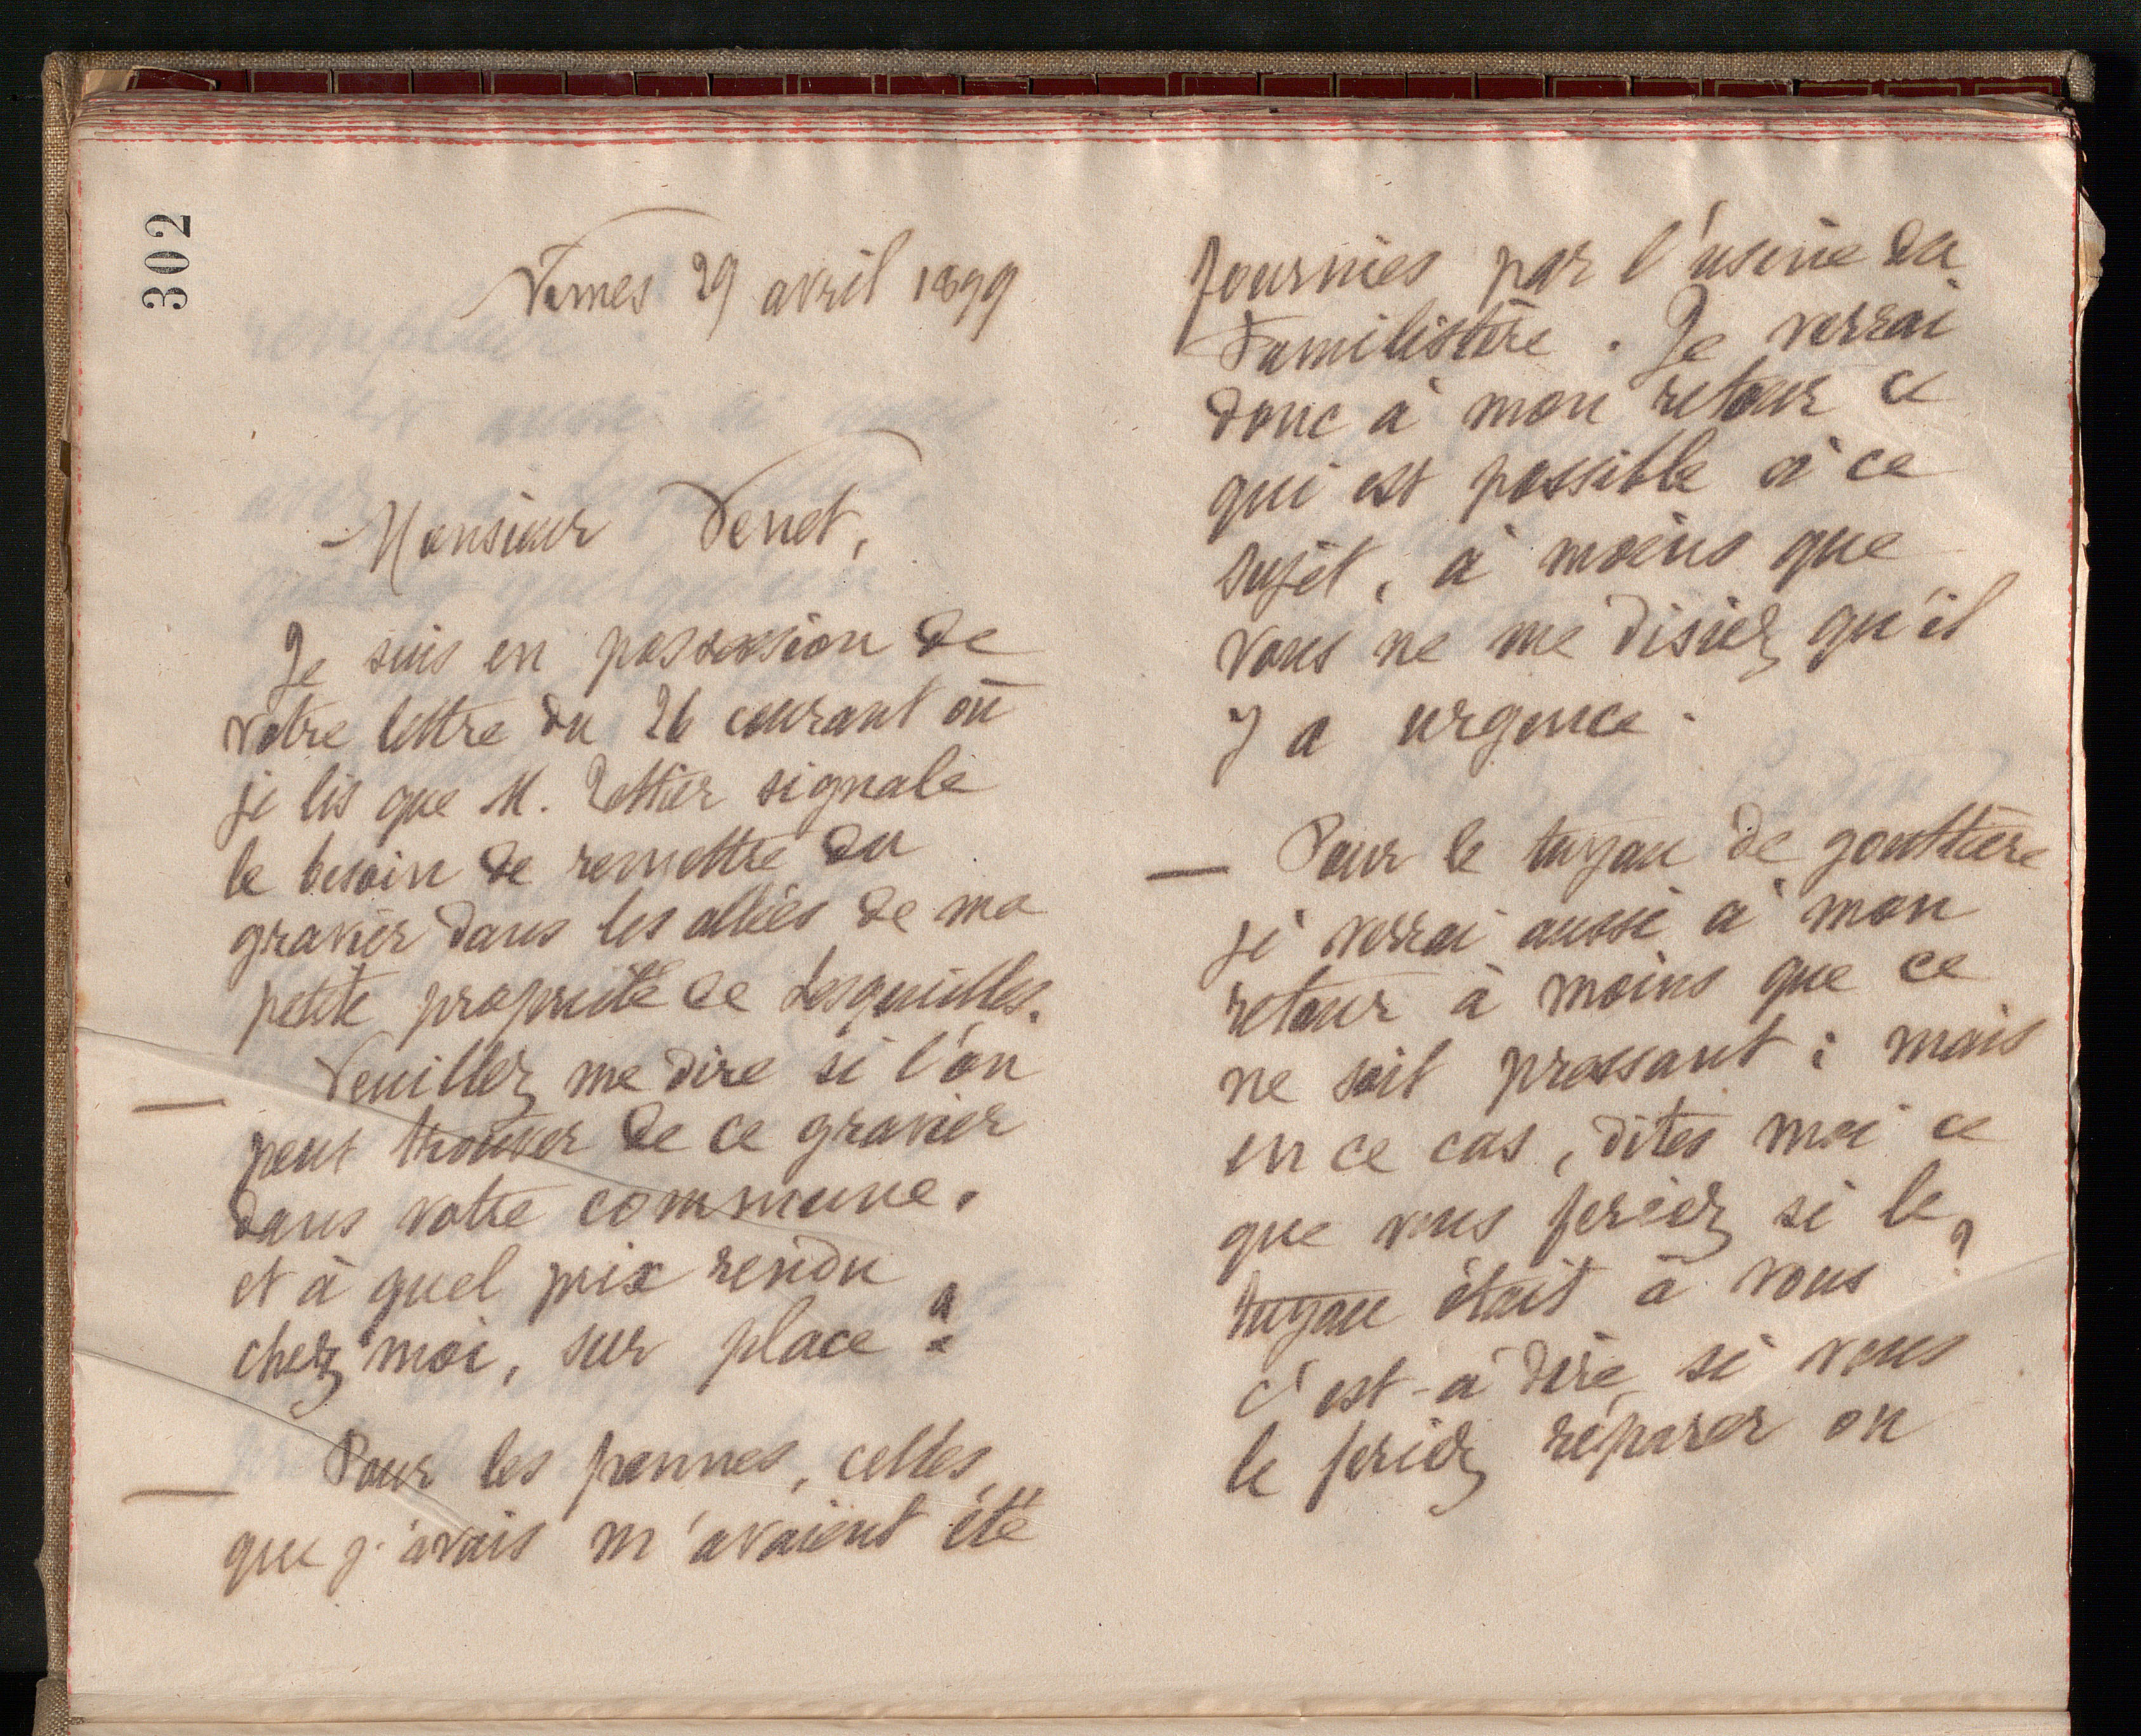 302
Nimes 29 avril 1899
Monsieur Venet,
Je suis en possession de
votre lettre du 26 courant où
je lis que M. signale
le besoin de remettre du
gravier dans les allées de ma
petite propriété de Lesquielles.
— Veuillez me dire si l'on
peut trouver de ce gravier
dans votre commune.
et à quel prix rendu
chez moi, sur place ?
— Pour les pannes, celles
que j'avais m'avaient été
fournies par l'usine du
Familistère. Je verrai
donc à mon retour ce
qui est possible à ce
sujet, à moins que
vous ne me disiez qu'il
y a urgence.
— Pour le tuyau de gouttière
je verrai aussi à mon
retour à moins que ce
ne soit pressant ; mais
en ce cas, dites moi ce
que vous feriez si le
tuyau était à vous ?
c'est-à dire si vous
le feriez réparer ou